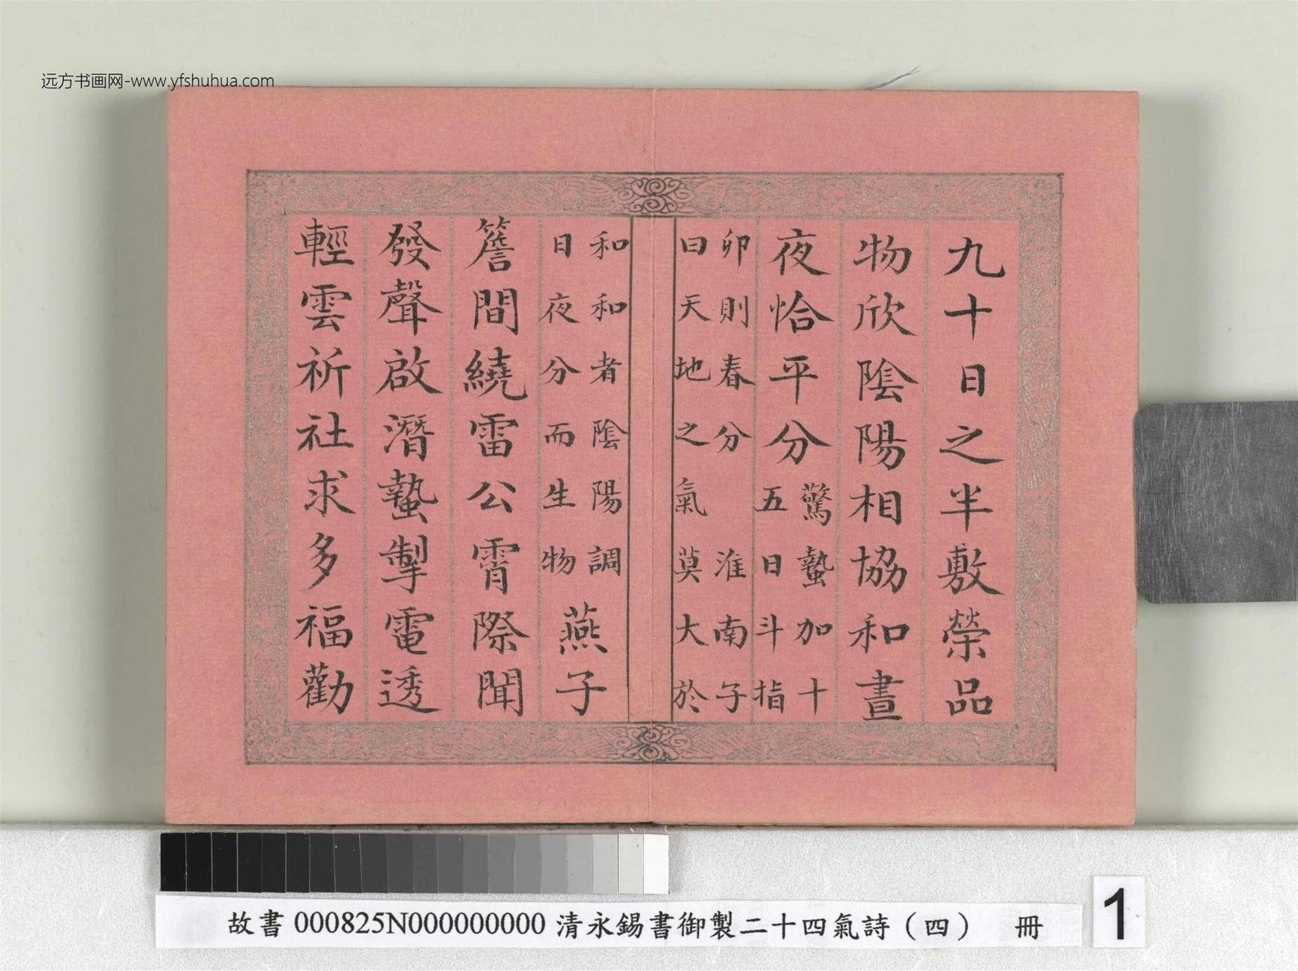 远方书画网-www.yfshuhua.com
九十日之半敷榮品
物欣陰陽相協和晝
夜恰平分
驚蟄加十
五日斗指
卯則春分 淮南子
曰天地之氣莫大於
和和者陰陽調
日夜分而生物
燕子
簷間繞雷公霄際聞
發聲啟潛蟄掣電透
輕雲祈社求多福勸
故書 000825N000000000 清永錫書御製二十四氣詩（四） 冊
1